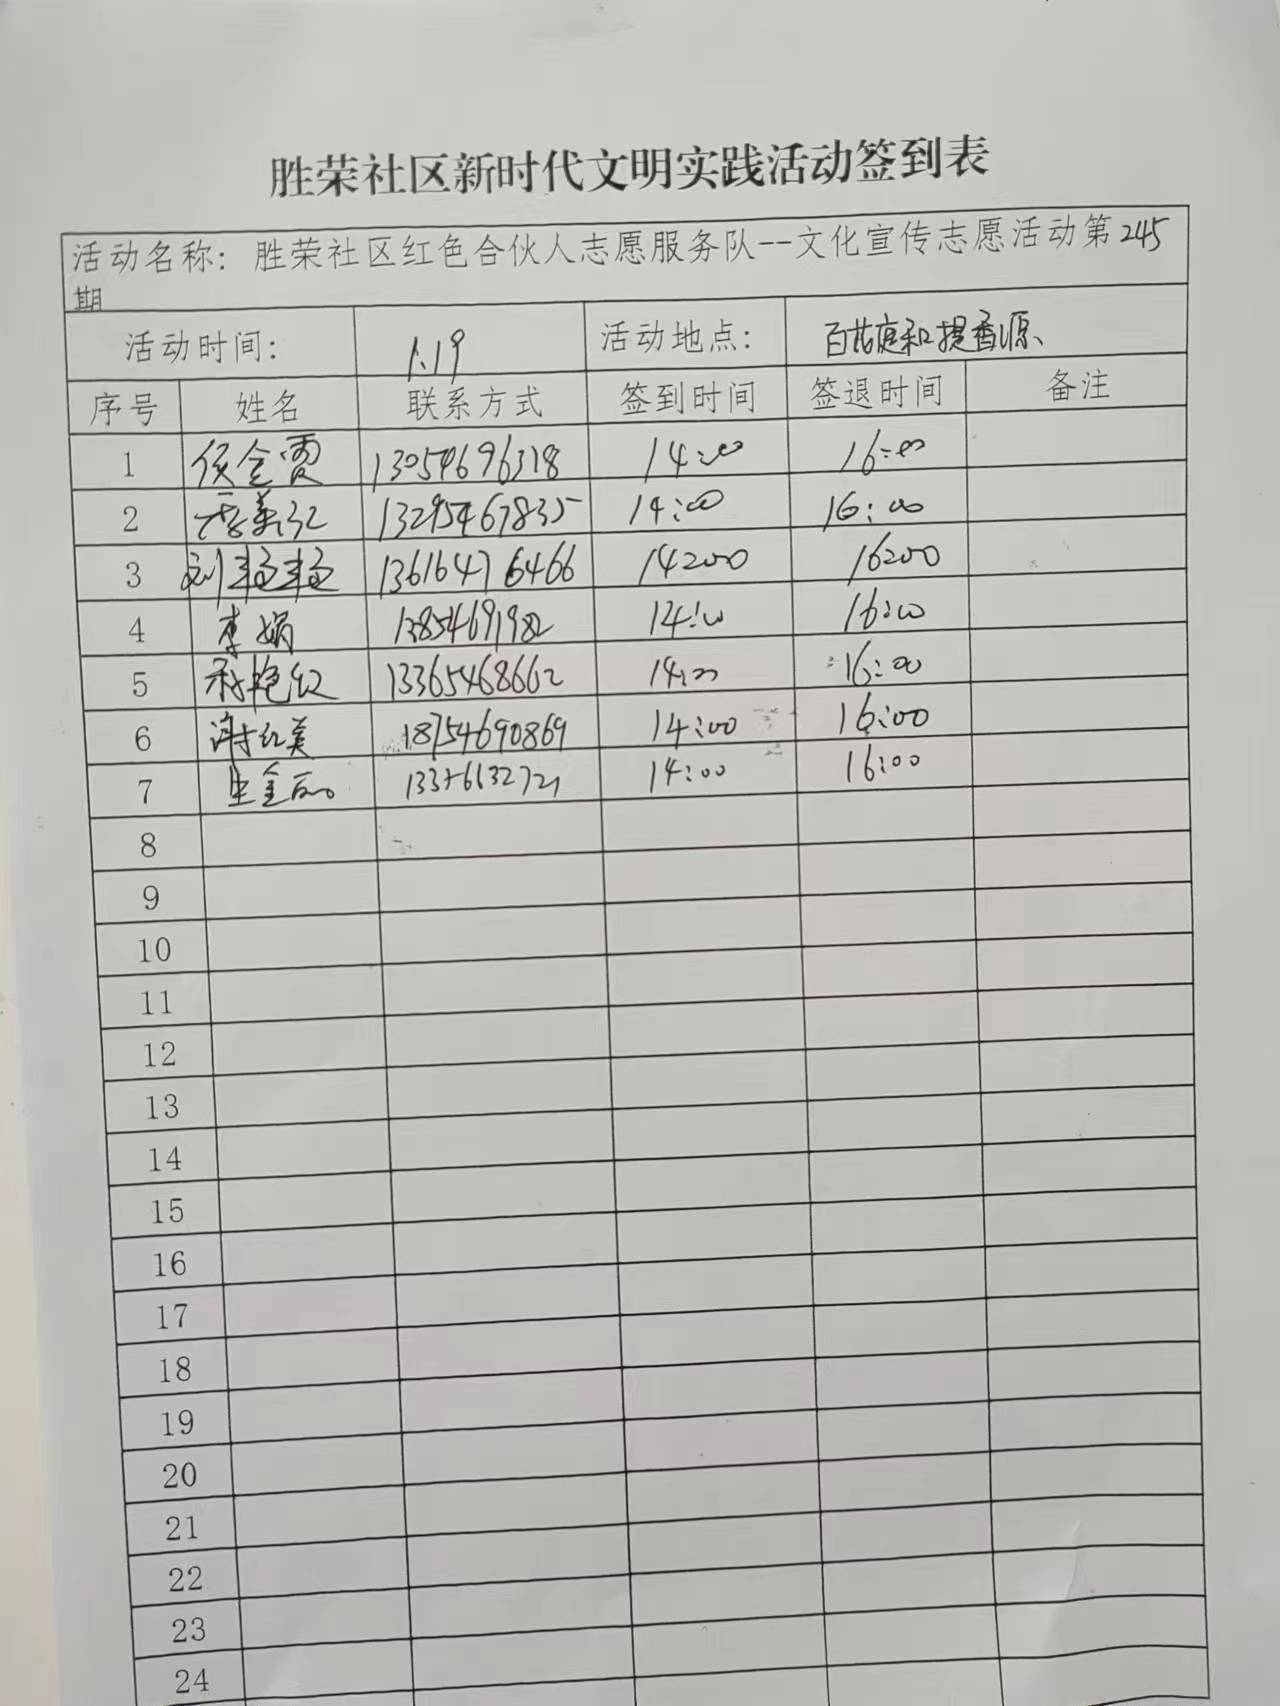 胜荣社区新时代文明实践活动签到表
活动名称：胜荣社区红色合伙人志愿服务队--文化宣传志愿活动第245
期
活动时间： 1.19 活动地点： 百花庭和提香源
序号 姓名 联系方式 签到时间 签退时间 备注
1 侯金霞 13054696318 14:00 16:00
2 李美红 13295467835 14:00 16:00
3 刘 13616476466 14:00 16:00
4 李娟 1385469198 14:00 16:00
5 艳红 13365468662 14:00 16:00
6 谢红美 18754690869 14:00 16:00
7 金 14:00 16:00
8
9
10
11
12
13
14
15
16
17
18
19
20
21
22
23
24